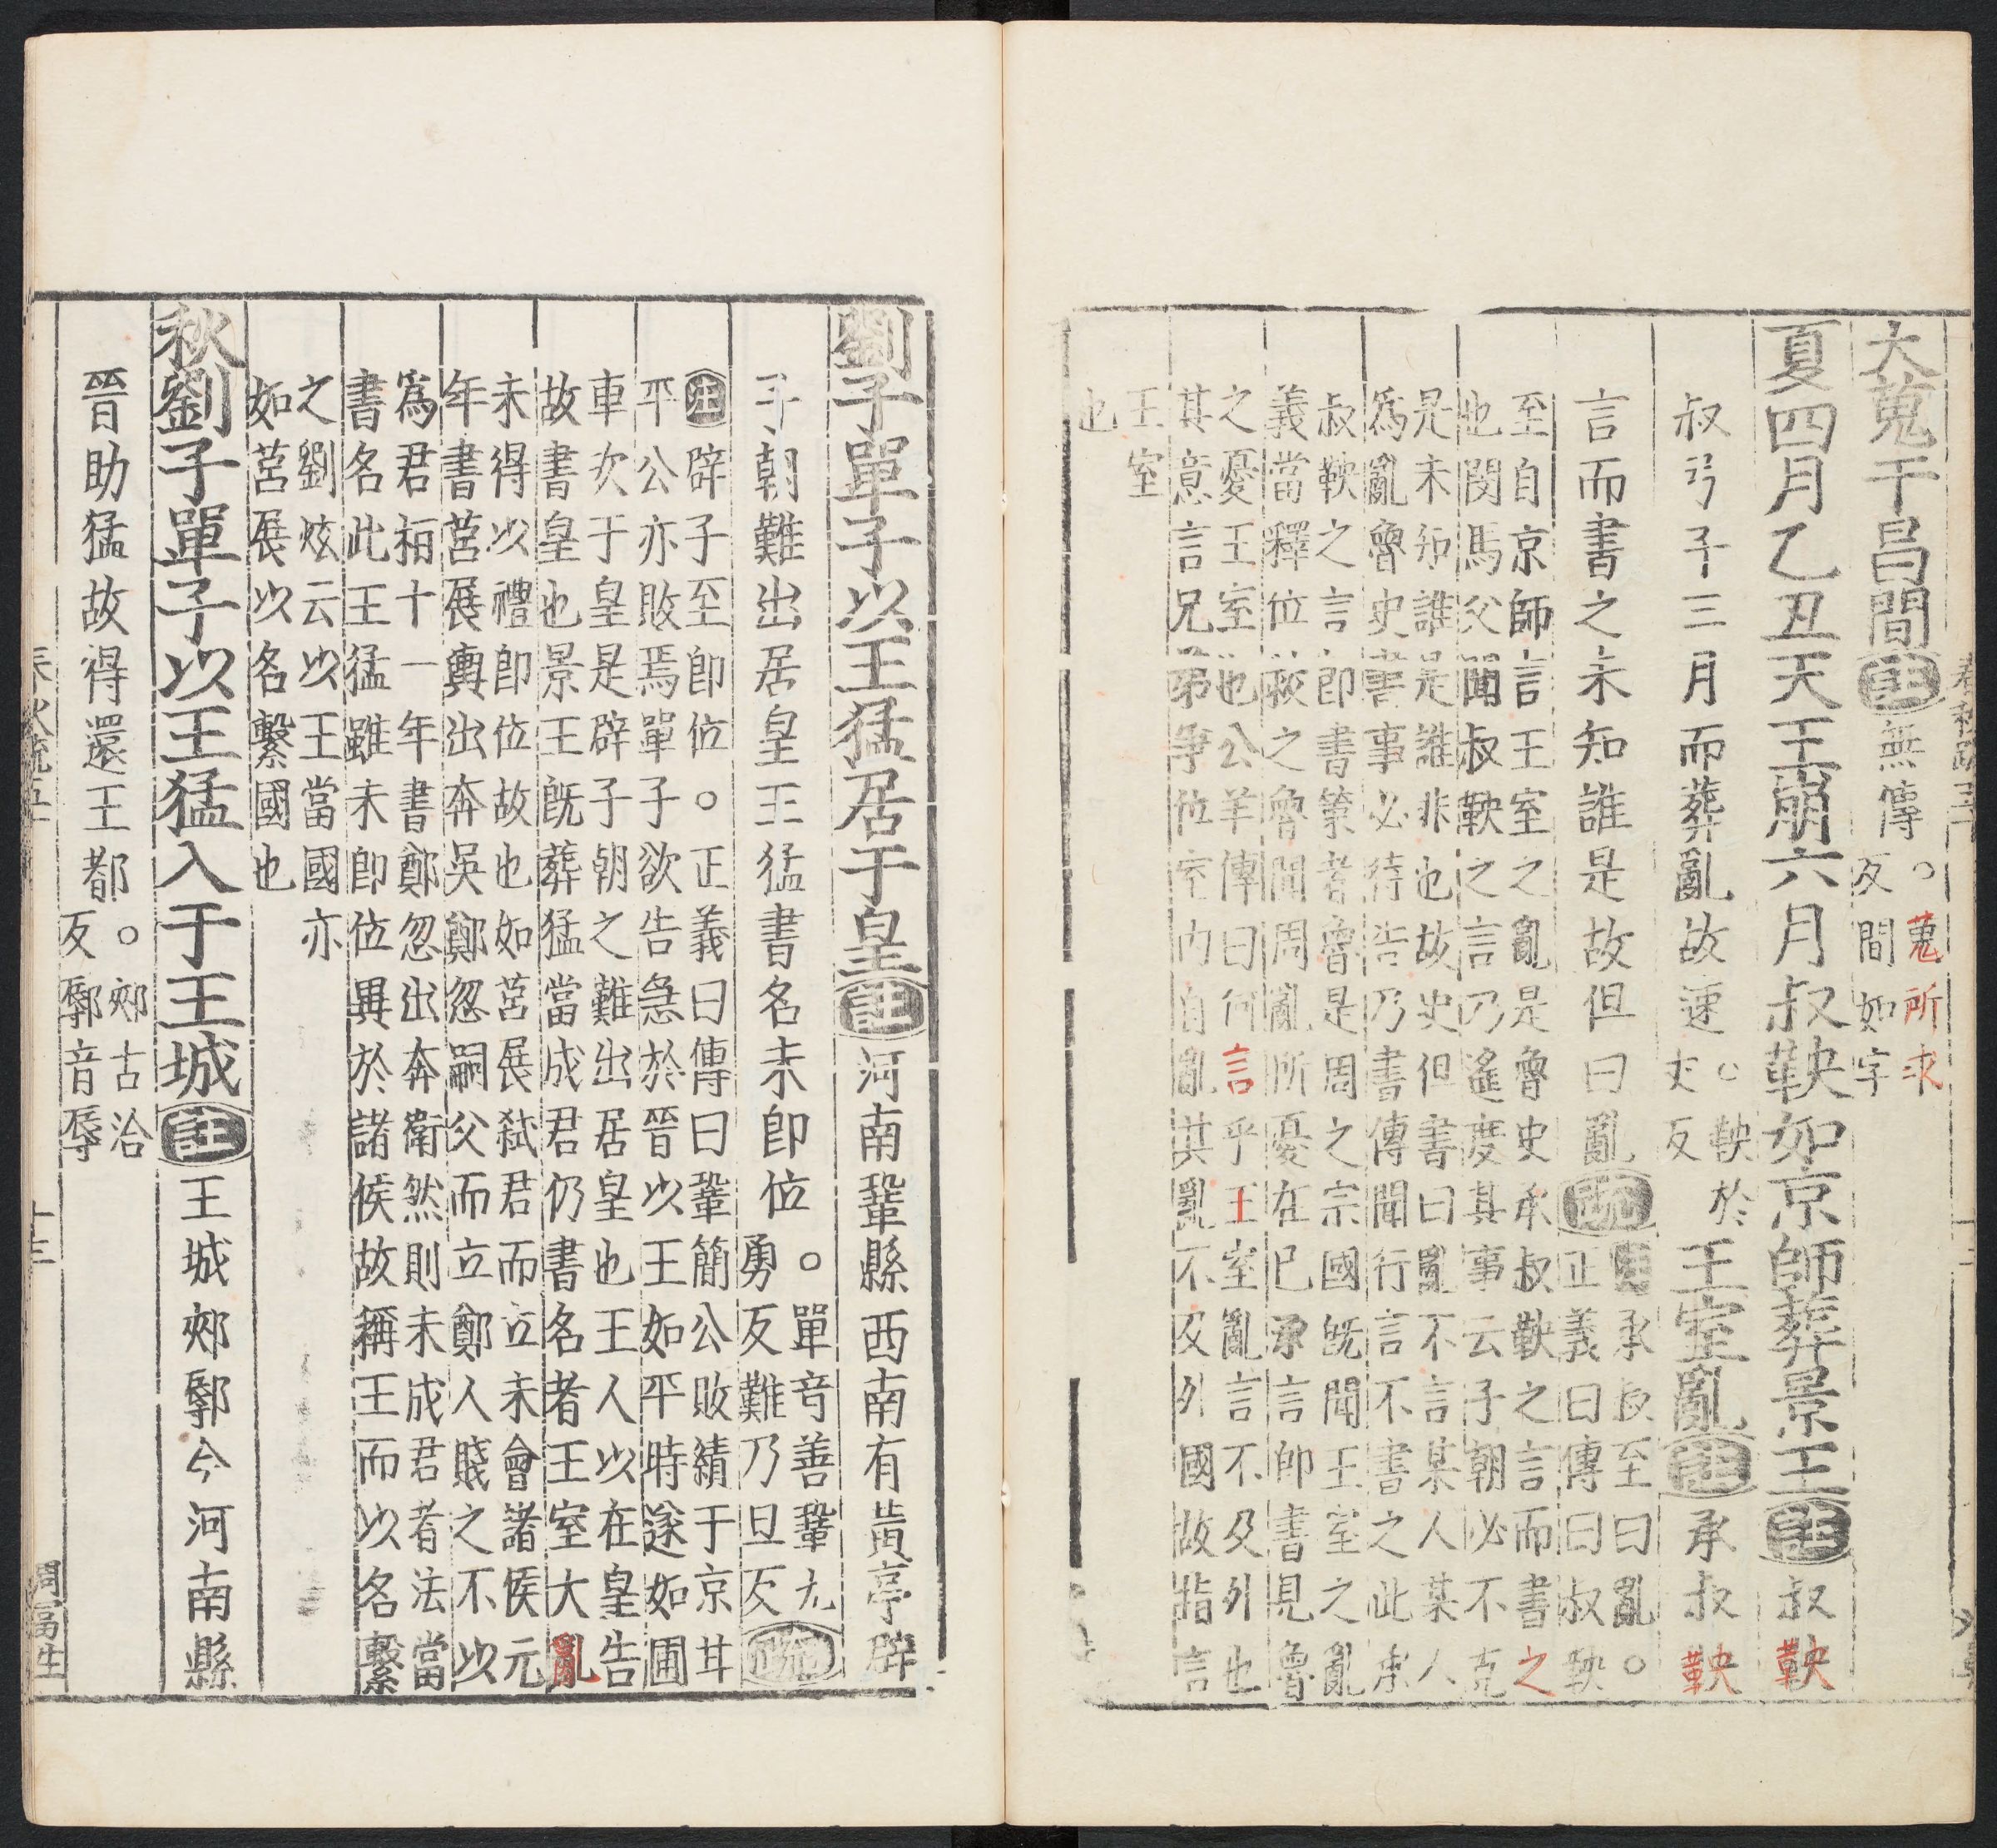 大蒐于昌間註無傳。
蒐所求
反間如字
夏四月乙丑天王崩六月叔鞅如京師葬景王註叔鞅
叔弓子三月而葬亂故速。
鞅於
丈反
王室亂註承叔鞅
言而書之未知誰是故但曰亂疏
註承叔至曰亂。
正義曰傳曰叔鞅
至自京師言王室之亂是魯史承叔鞅之言而書之
也閔馬父聞叔鞅之言乃遙度其事云子朝必不克
是未知誰是誰非也故史但書曰亂不言某人某人
為亂魯史書事必待告乃書傳聞行言不書之此承
叔鞅之言即書策者魯是周之宗國既聞王室之亂
義當釋位救之魯聞周亂所憂在已承言即書見魯
之憂王室也公羊傳曰何言乎王室亂言不及外也
其意言兄弟爭位室內自亂其亂不及外國故指言
王室
也
劉子單子以王猛居于皇註河南鞏縣西南有黃亭辟
子朝難出居皇王猛書名未即位。
單音善鞏九
勇反難乃旦反
疏
註辟子至即位。正義曰傳曰鞏簡公敗績于京甘
平公亦敗焉單子欲告急於晉以王如平時遂如圃
車次于皇是辟子朝之難出居皇也王人以在皇告
故書皇也景王既葬猛當成君仍書名者王室大亂
未得以禮即位故也如莒展弒君而立未會諸侯元
年書莒展輿出奔吳鄭忽嗣父而立鄭人賤之不以
為君桓十一年書鄭忽出奔衛然則未成君者法當
書名此王猛雖未即位異於諸侯故稱王而以名繫
之劉炫云以王當國亦
如莒展以名繫國也
秋劉子單子以王猛入于王城註王城郟鄏今河南縣
晉助猛故得還王都。
郟古洽
反鄏音辱
春秋疏五十
十三
周富生